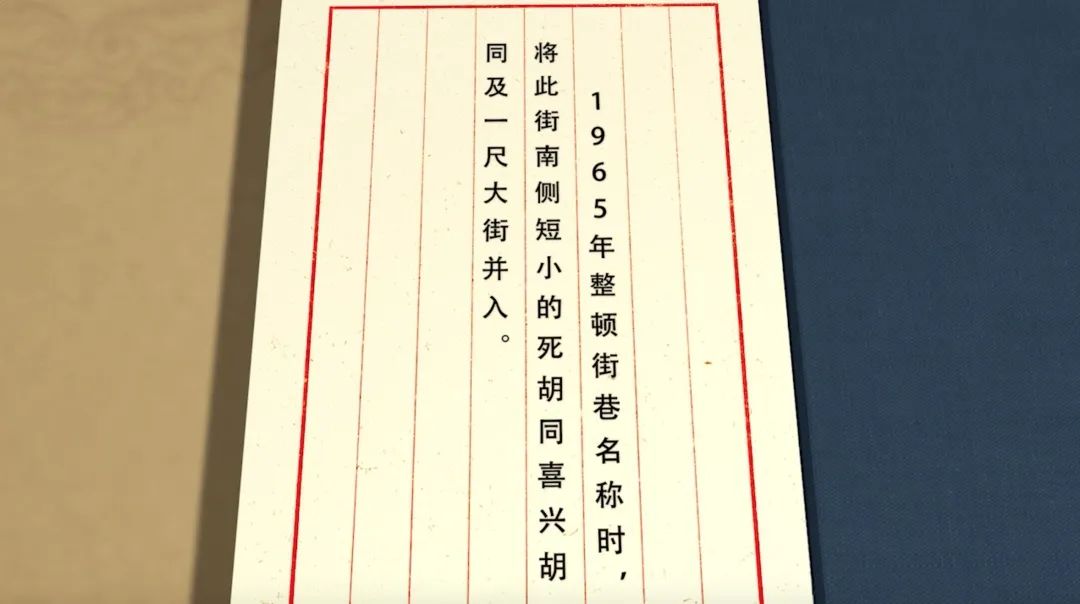 1965年整顿街巷名称时，
将此街南侧短小的死胡同喜兴胡
同及一尺大街并入。